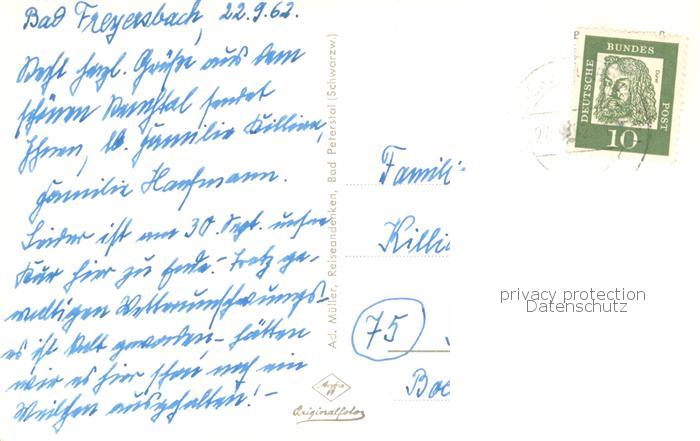 Bad Freyersbach, 22.9.62.
Recht herzl. Grüße aus dem
schönen Renchtal sendet
Ihnen, lb. Familie Killian,
Familie Kaufmann.
Leider ist am 30. Sept. unsere
Kur hier zu Ende. - Trotz ge-
waltigen Wetterumschwungs -
es ist kalt geworden - hätten
wir es hier schon noch ein
Weilchen ausgehalten! -
Ad. Müller, Reiseandenken, Bad Peterstal (Schwarzw.)
Originalfoto
Famili
Killi
75
DEUTSCHE
BUNDES
POST
Dürer
10
privacy protection
Datenschutz